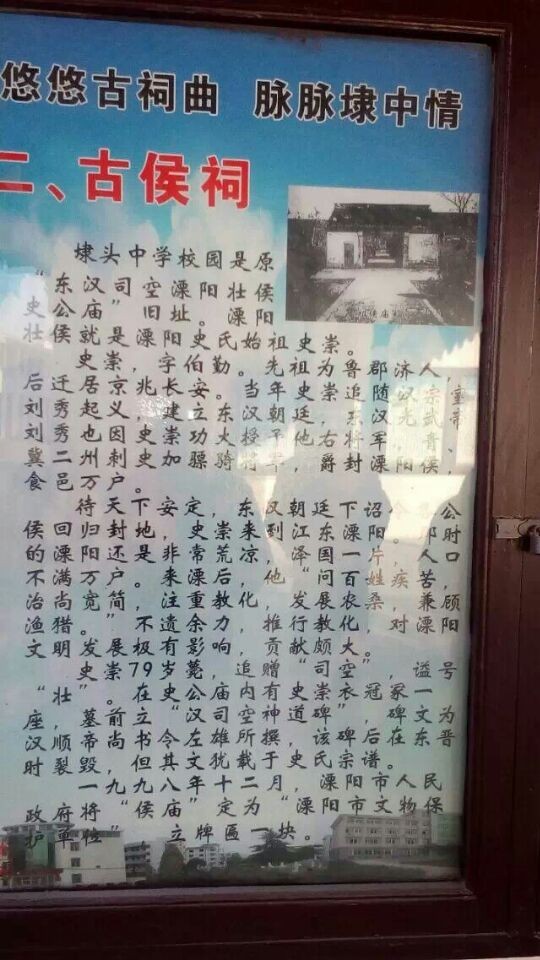 悠悠古祠曲 脉脉埭中情
二、古侯祠
埭头中学校园是原
“东汉司空溧阳壮侯
史公庙”旧址。溧阳
壮侯就是溧阳史氏始祖史崇。
史崇，字伯勤。先祖为鲁郡济人，
后迁居京兆长安。当年史崇追随汉宗室
刘秀起义，建立东汉朝廷，东汉光武帝
刘秀也因史崇功大授予他右将军，青、
冀二州刺史加骠骑将军，爵封溧阳侯，
食邑万户。
待天下安定，东汉朝廷下诏令 公
侯回归封地，史崇来到江东溧阳。那时
的溧阳还是非常荒凉，泽国一片，人口
不满万户。来溧后，他“问百姓疾苦，
治尚宽简，注重教化，发展农桑，兼顾
渔猎。”不遗余力，推行教化，对溧阳
文明发展极有影响，贡献颇大。
史崇79岁薨，追赠“司空”，谥号
“壮”。在史公庙内有史崇衣冠冢一
座，墓前立“汉司空神道碑”，碑文为
汉顺帝尚书令左雄所撰，该碑后在东晋
时裂毁，但其文犹载于史氏宗谱。
一九九八年十二月，溧阳市人民
政府将“侯庙”定为“溧阳市文物保
护单位”，立牌匾一块。